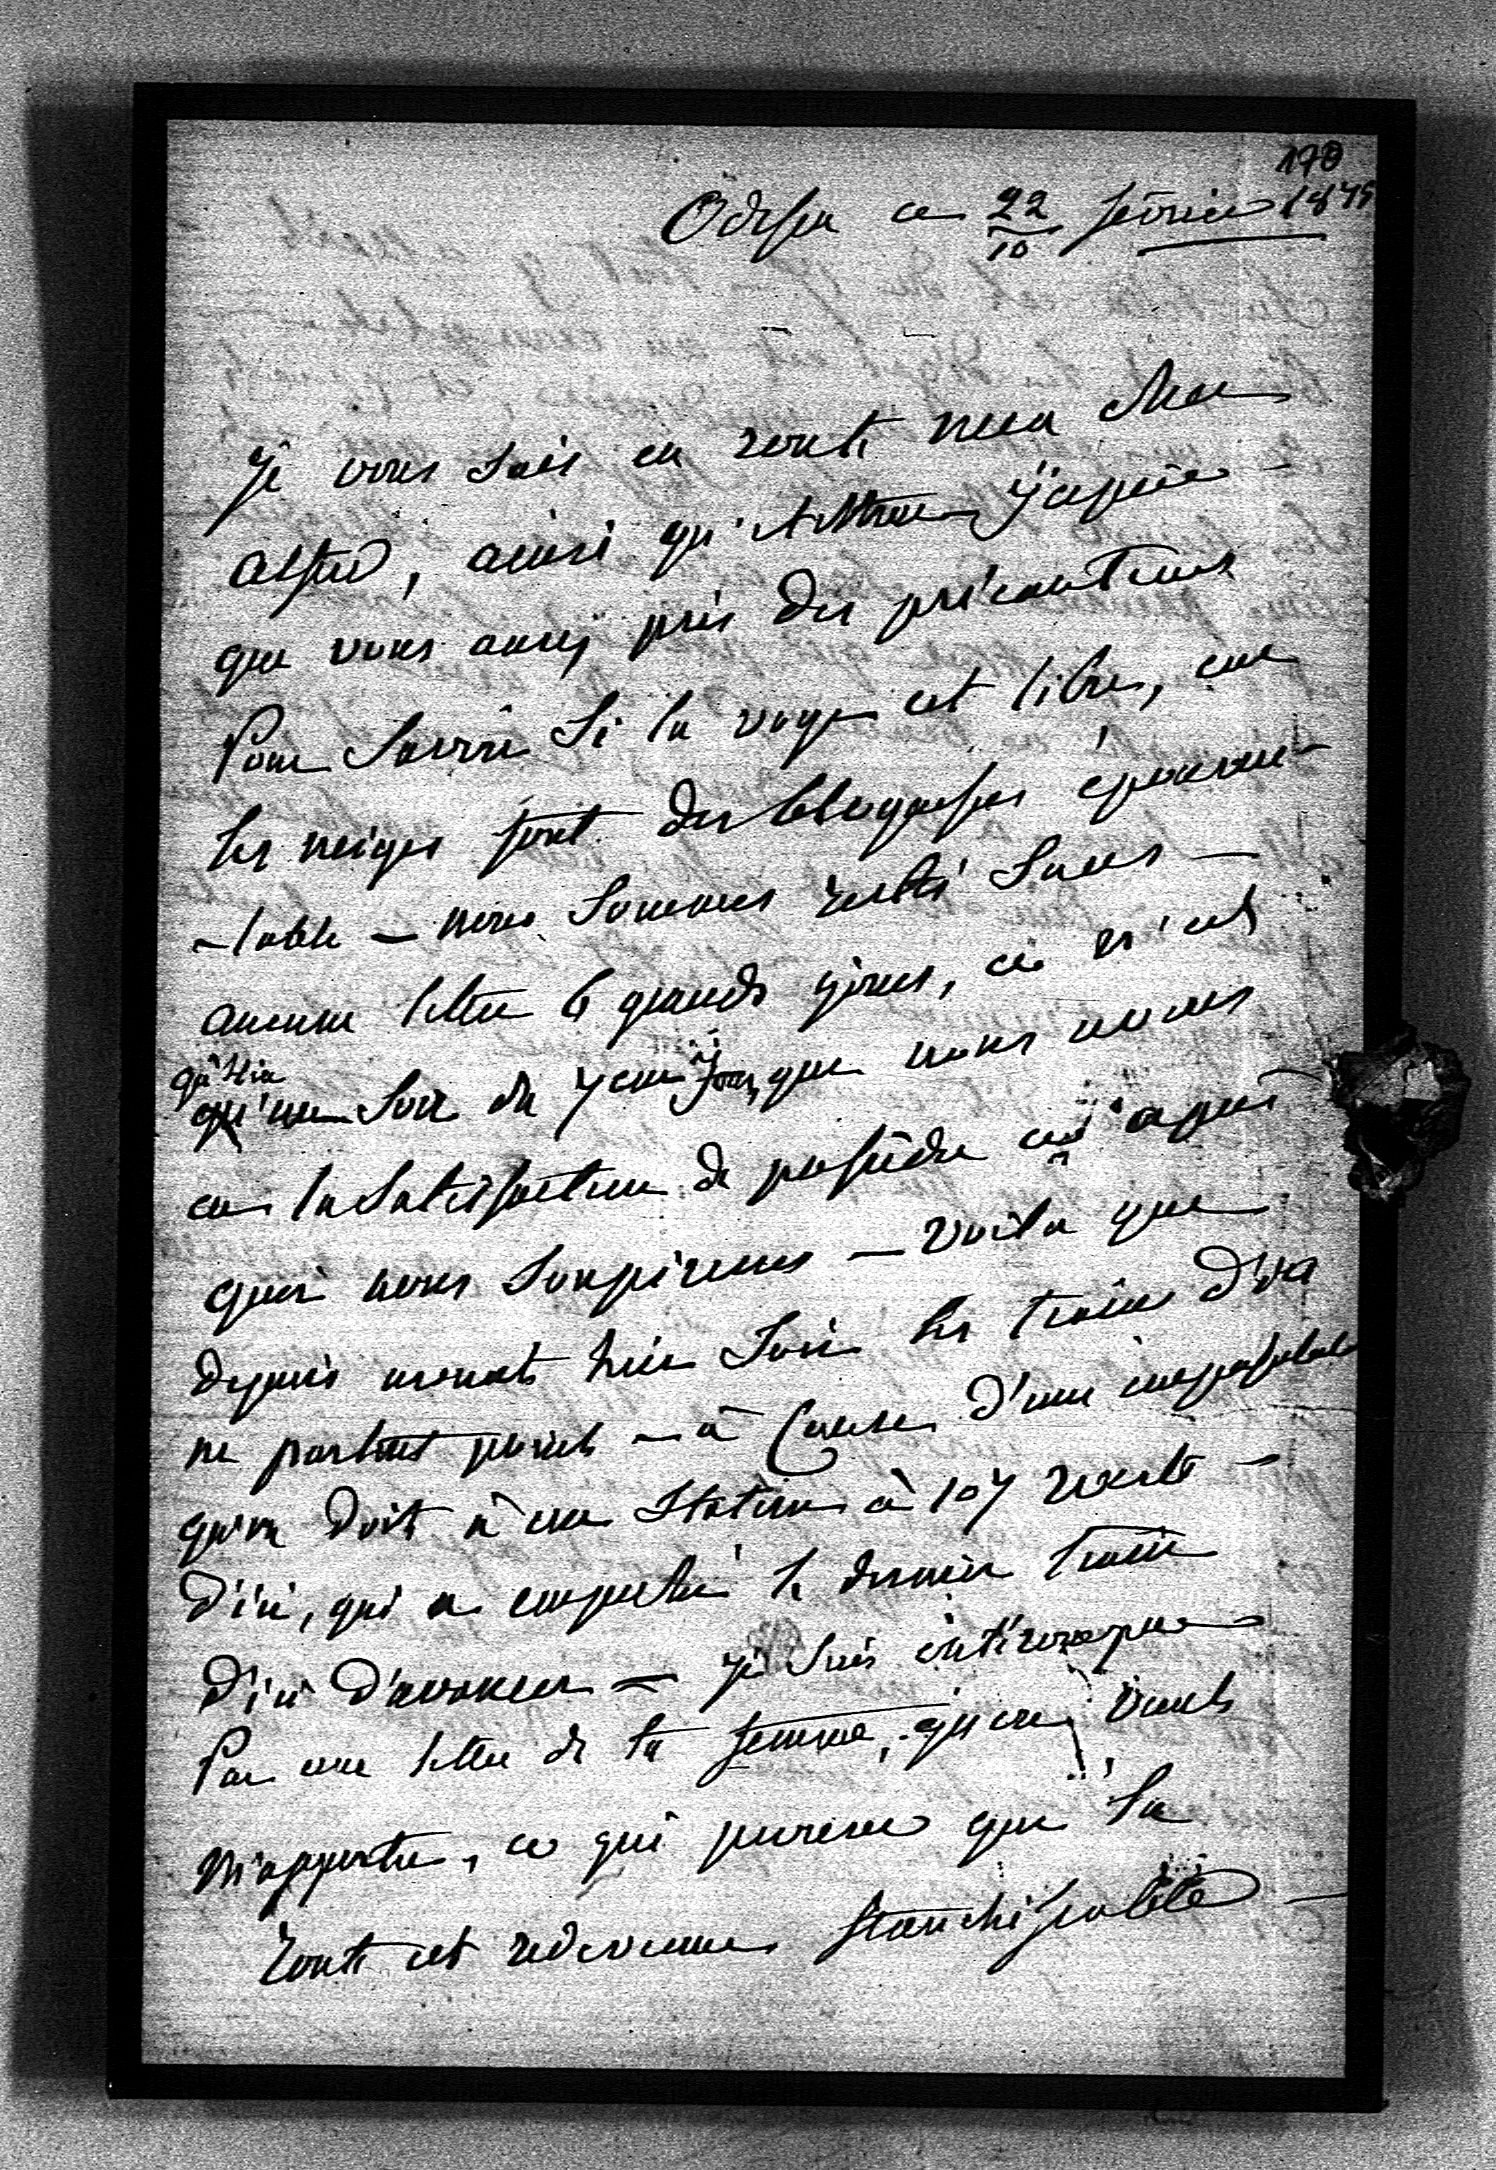 178
Odessa ce 22/10 février 1875
Je vous sais en route mon cher
Alfred, ainsi qu'Arthur j'espère
que vous aurez pris des précautions
Pour Savoir Si la voye est libre, car
les neiges font des bloquesses épouvan-
-table — nous sommes restés Sans —
aucune lettre 6 grands jours, ce n'est
qu'hier
qu'un Soir du 7eme Jour, que nous avons
eu la Satisfaction de posséder ces après
quoi nous Soupirons — voila que
depuis avant hier Soir les trains d'ici
ne partent point — à Cause d'une
qu'on doit à une Station à 107 verst —
d'ici, qui a empeché le dernier train
d'ici d'avancer — je suis intérompue
Par une lettre de ta femme, qu'on vient
m'apporter, ce qui prouve que la
route est redevenue